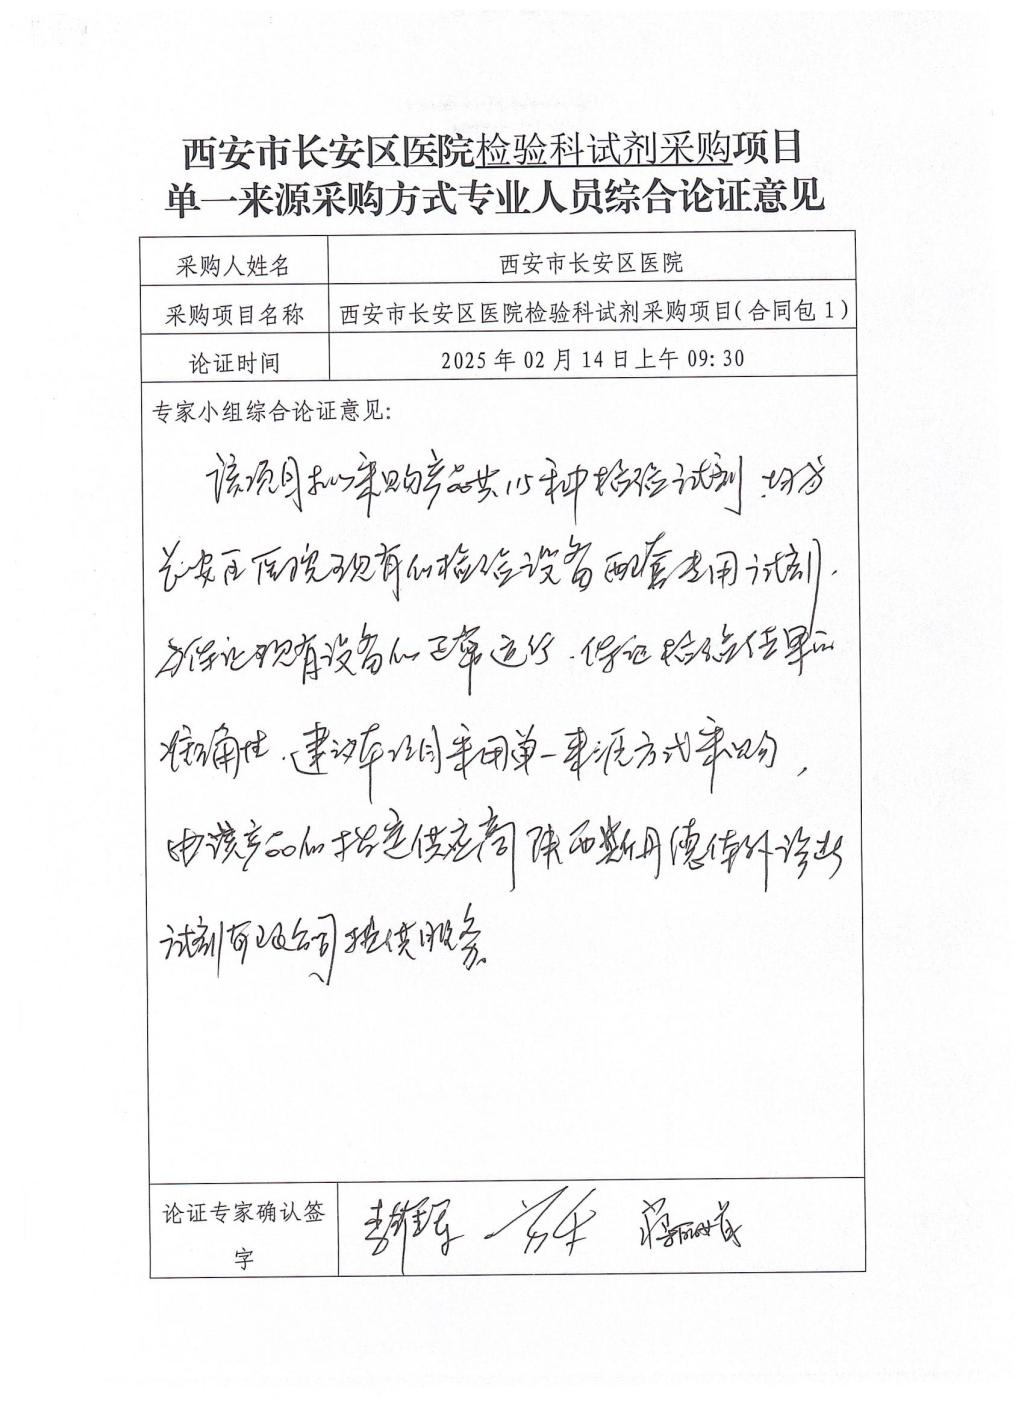 西安市长安区医院检验科试剂采购项目
单一来源采购方式专业人员综合论证意见
采购人姓名 西安市长安区医院
采购项目名称 西安市长安区医院检验科试剂采购项目(合同包1)
论证时间 2025年02月14日上午09:30
专家小组综合论证意见:
该项目拟采购产品共115种检验试剂,均为
长安区医院现有的检验设备配套专用试剂,
为保证现有设备的正常运行,保证检验结果的
准确性,建议本项目采用单一来源方式采购,
由该产品的指定供应商陕西斯丹德体外诊断
试剂有限公司提供服务。
论证专家确认签
字